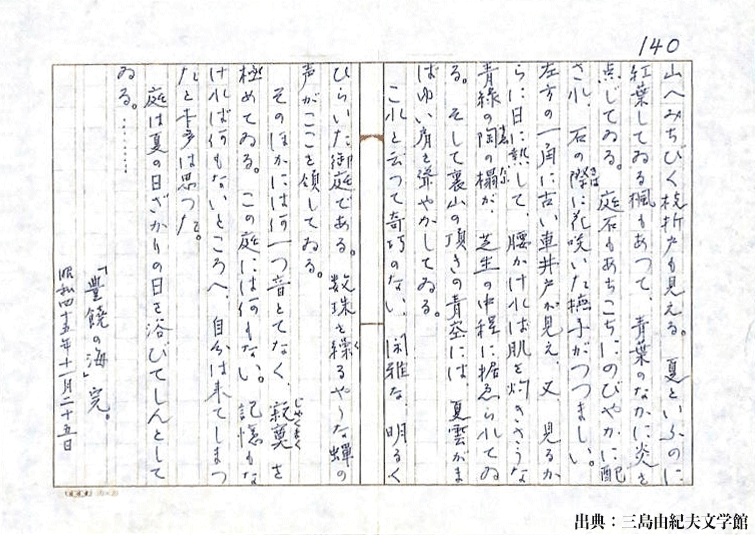 140
山へみちびく枝折戸も見える。夏といふのに
紅葉してゐる楓もあつて、青葉のなかに炎を
点じてゐる。庭石もあちこちにのびやかに配
され、石の際に花咲いた撫子がつつましい。
左方の一角に古い車井戸が見え、又、見るか
らに日に熱して、腰かければ肌を灼きさうな
青緑の陶の榻が、芝生の中程に据ゑられてゐ
る。そして裏山の頂きの青空には、夏雲がま
ばゆい肩を聳やかしてゐる。
これと云つて奇巧のない、閑雅な、明るく
ひらいた御庭である。数珠を繰るやうな蝉の
声がここを領してゐる。
そのほかには何一つ音とてなく、寂寞を
極めてゐる。この庭には何もない。記憶もな
ければ何もないところへ、自分は来てしまつ
たと本多は思つた。
庭は夏の日ざかりの日を浴びてしんとして
ゐる。‥‥‥‥
「豊饒の海」完。
昭和四十五年十一月二十五日
出典：三島由紀夫文学館